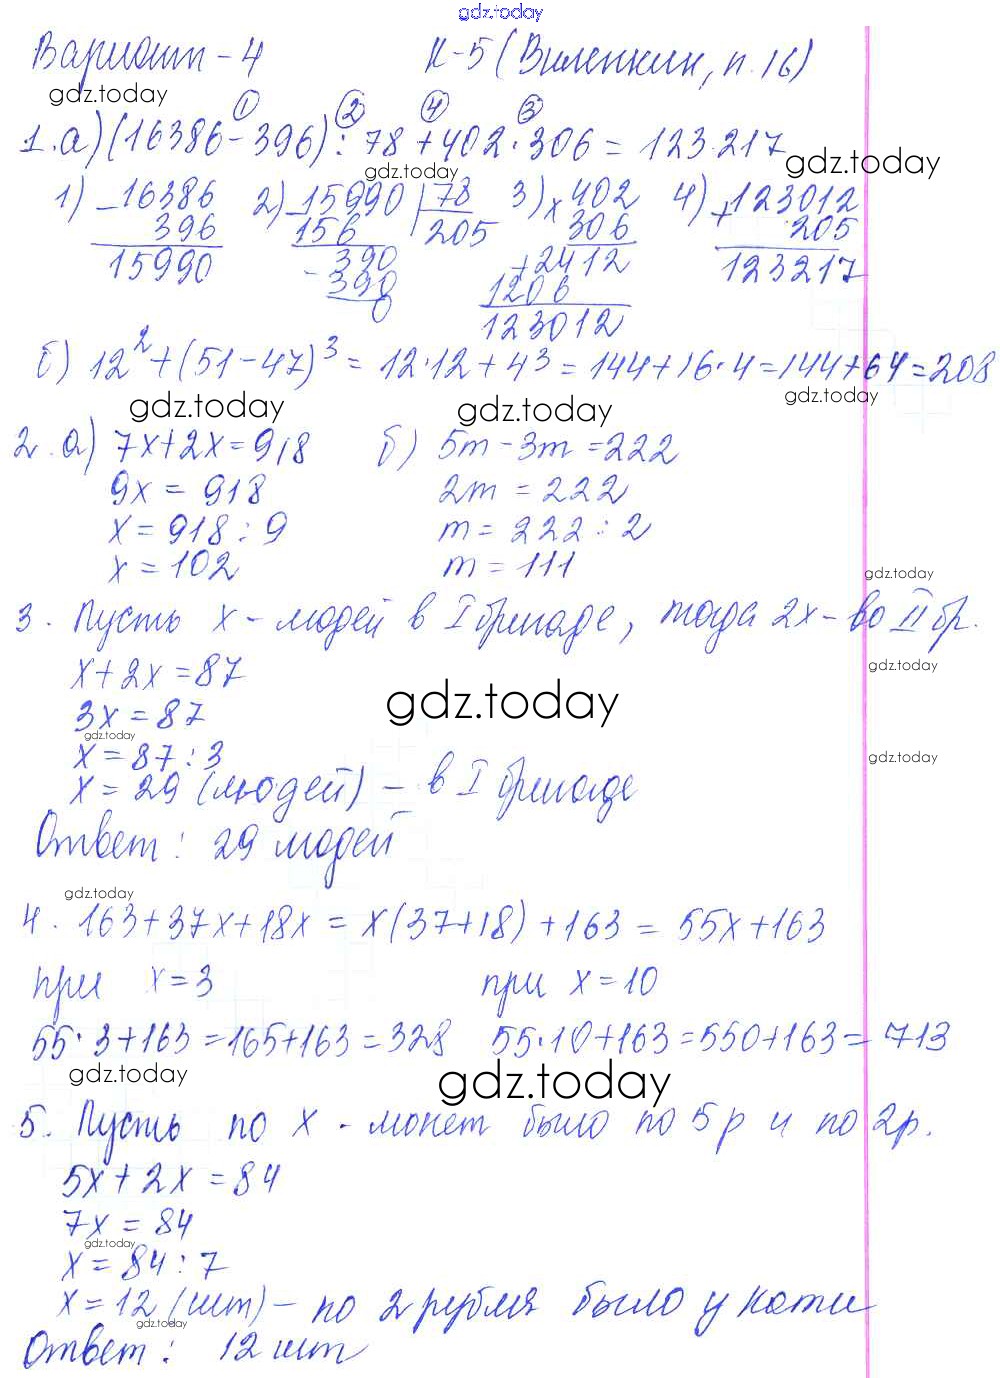 gdz.today
Вариант - 4 К-5 (Виленкин, п. 16)
gdz.today
① ② ④ ③
1. а) (16386 - 396) : 78 + 402 · 306 = 123217
gdz.today gdz.today
1) - 16386 2) - 15990 | 78 3) × 402 4) + 123012
396 156 205 306 205
15990 - 390 + 2412 123217
390 1206
0 123012
б) 12² + (51 - 47)³ = 12 · 12 + 4³ = 144 + 16 · 4 = 144 + 64 = 208
gdz.today gdz.today gdz.today
2. а) 7x + 2x = 918 б) 5m - 3m = 222
9x = 918 2m = 222
x = 918 : 9 m = 222 : 2
x = 102 m = 111
gdz.today
3. Пусть x - людей в I бригаде, тогда 2x - во II бр.
x + 2x = 87 gdz.today
3x = 87 gdz.today
gdz.today
x = 87 : 3 gdz.today
x = 29 (людей) - в I бригаде
Ответ: 29 людей
gdz.today
4. 163 + 37x + 18x = x(37 + 18) + 163 = 55x + 163
при x = 3 при x = 10
55 · 3 + 163 = 165 + 163 = 328 55 · 10 + 163 = 550 + 163 = 713
gdz.today gdz.today
5. Пусть по x - монет было по 5 р и по 2р.
5x + 2x = 84
7x = 84
gdz.today
x = 84 : 7
x = 12 (шт) - по 2 рубля было у Кати
gdz.today
Ответ: 12 шт